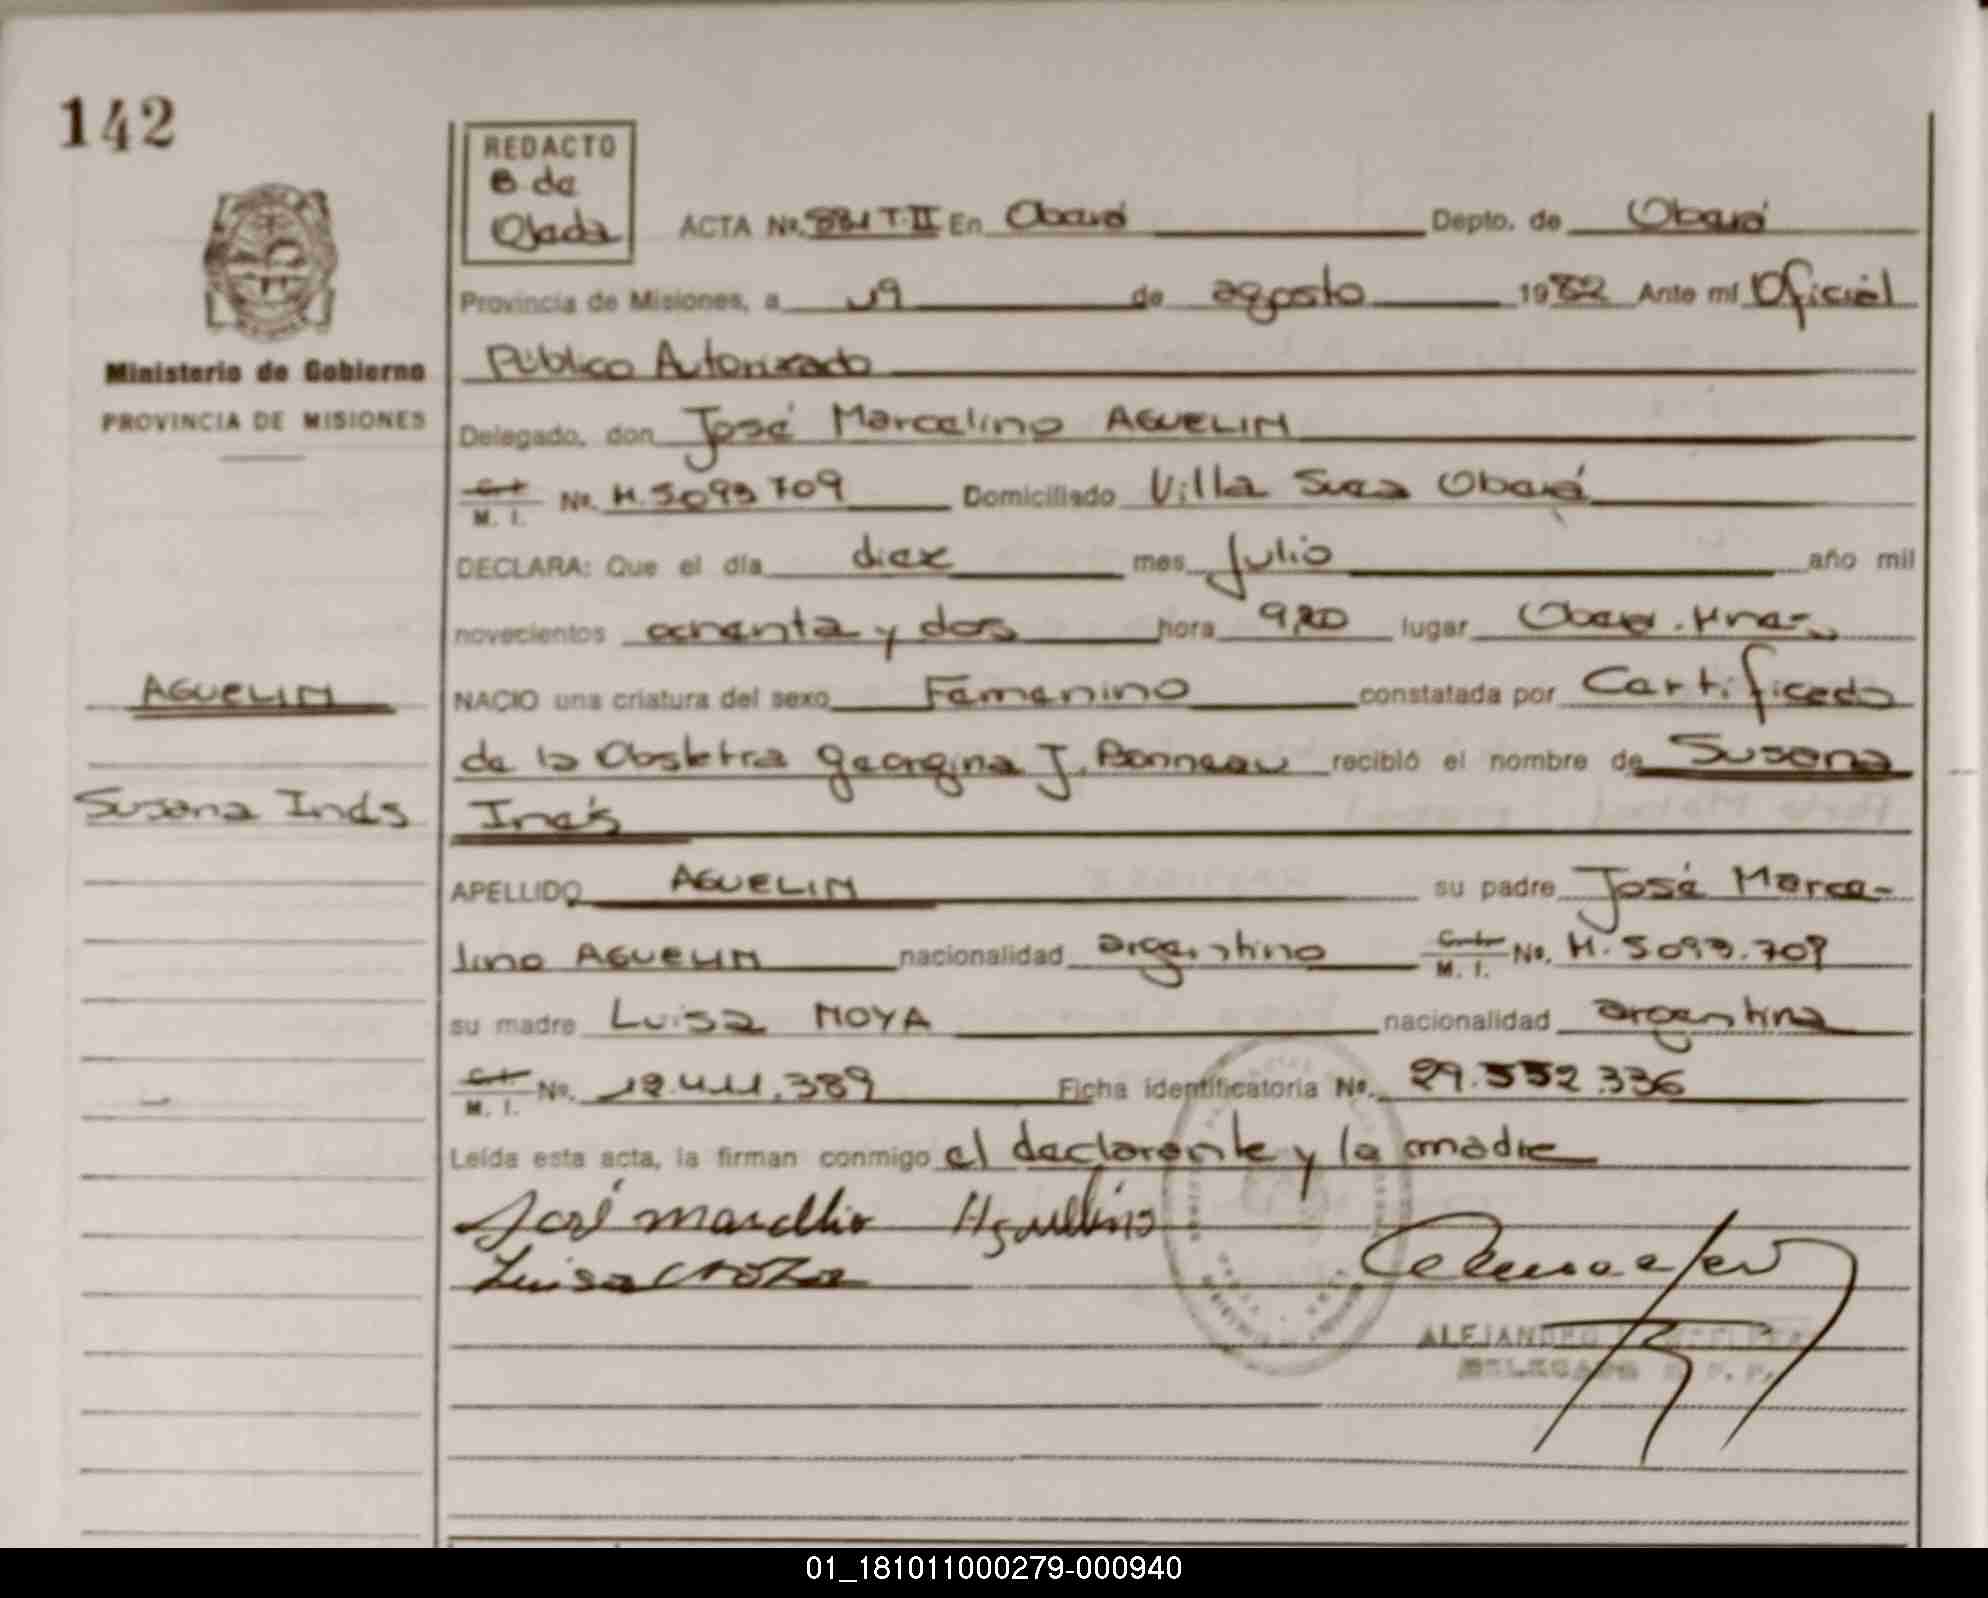 142
REDACTO
B. de
Ojeda
ACTA No. 881 T.II En Oberá Depto. de Oberá
Provincia de Misiones, a 19 de agosto 1982 Ante mí Oficial
Público Autorizado
Ministerio de Gobierno
PROVINCIA DE MISIONES
Delegado, don José Marcelino AGUELIN
M. I. No. M. 5093709 Domiciliado Villa Svea Oberá
DECLARA: Que el día diez mes Julio año mil
novecientos ochenta y dos hora 9,20 lugar Oberá. Mnes.
AGUELIN
NACIO una criatura del sexo Femenino constatada por Certificado
de la Obstetra Georgina J. Bonneau recibló el nombre de Susana
Susana Inés
Inés
APELLIDO AGUELIN su padre José Marce-
lino AGUELIN nacionalidad argentino M. I. No. M. 5093.709
su madre Luisa MOYA nacionalidad argentina
M. I. No. 12.411.389 Ficha identificatoria No. 29.552.336
Leída esta acta, la firman conmigo el declarante y la madre
José Marcelino
Luisa Moya
ALEJANDRO
DELEGADO R. P. P.
01_181011000279-000940